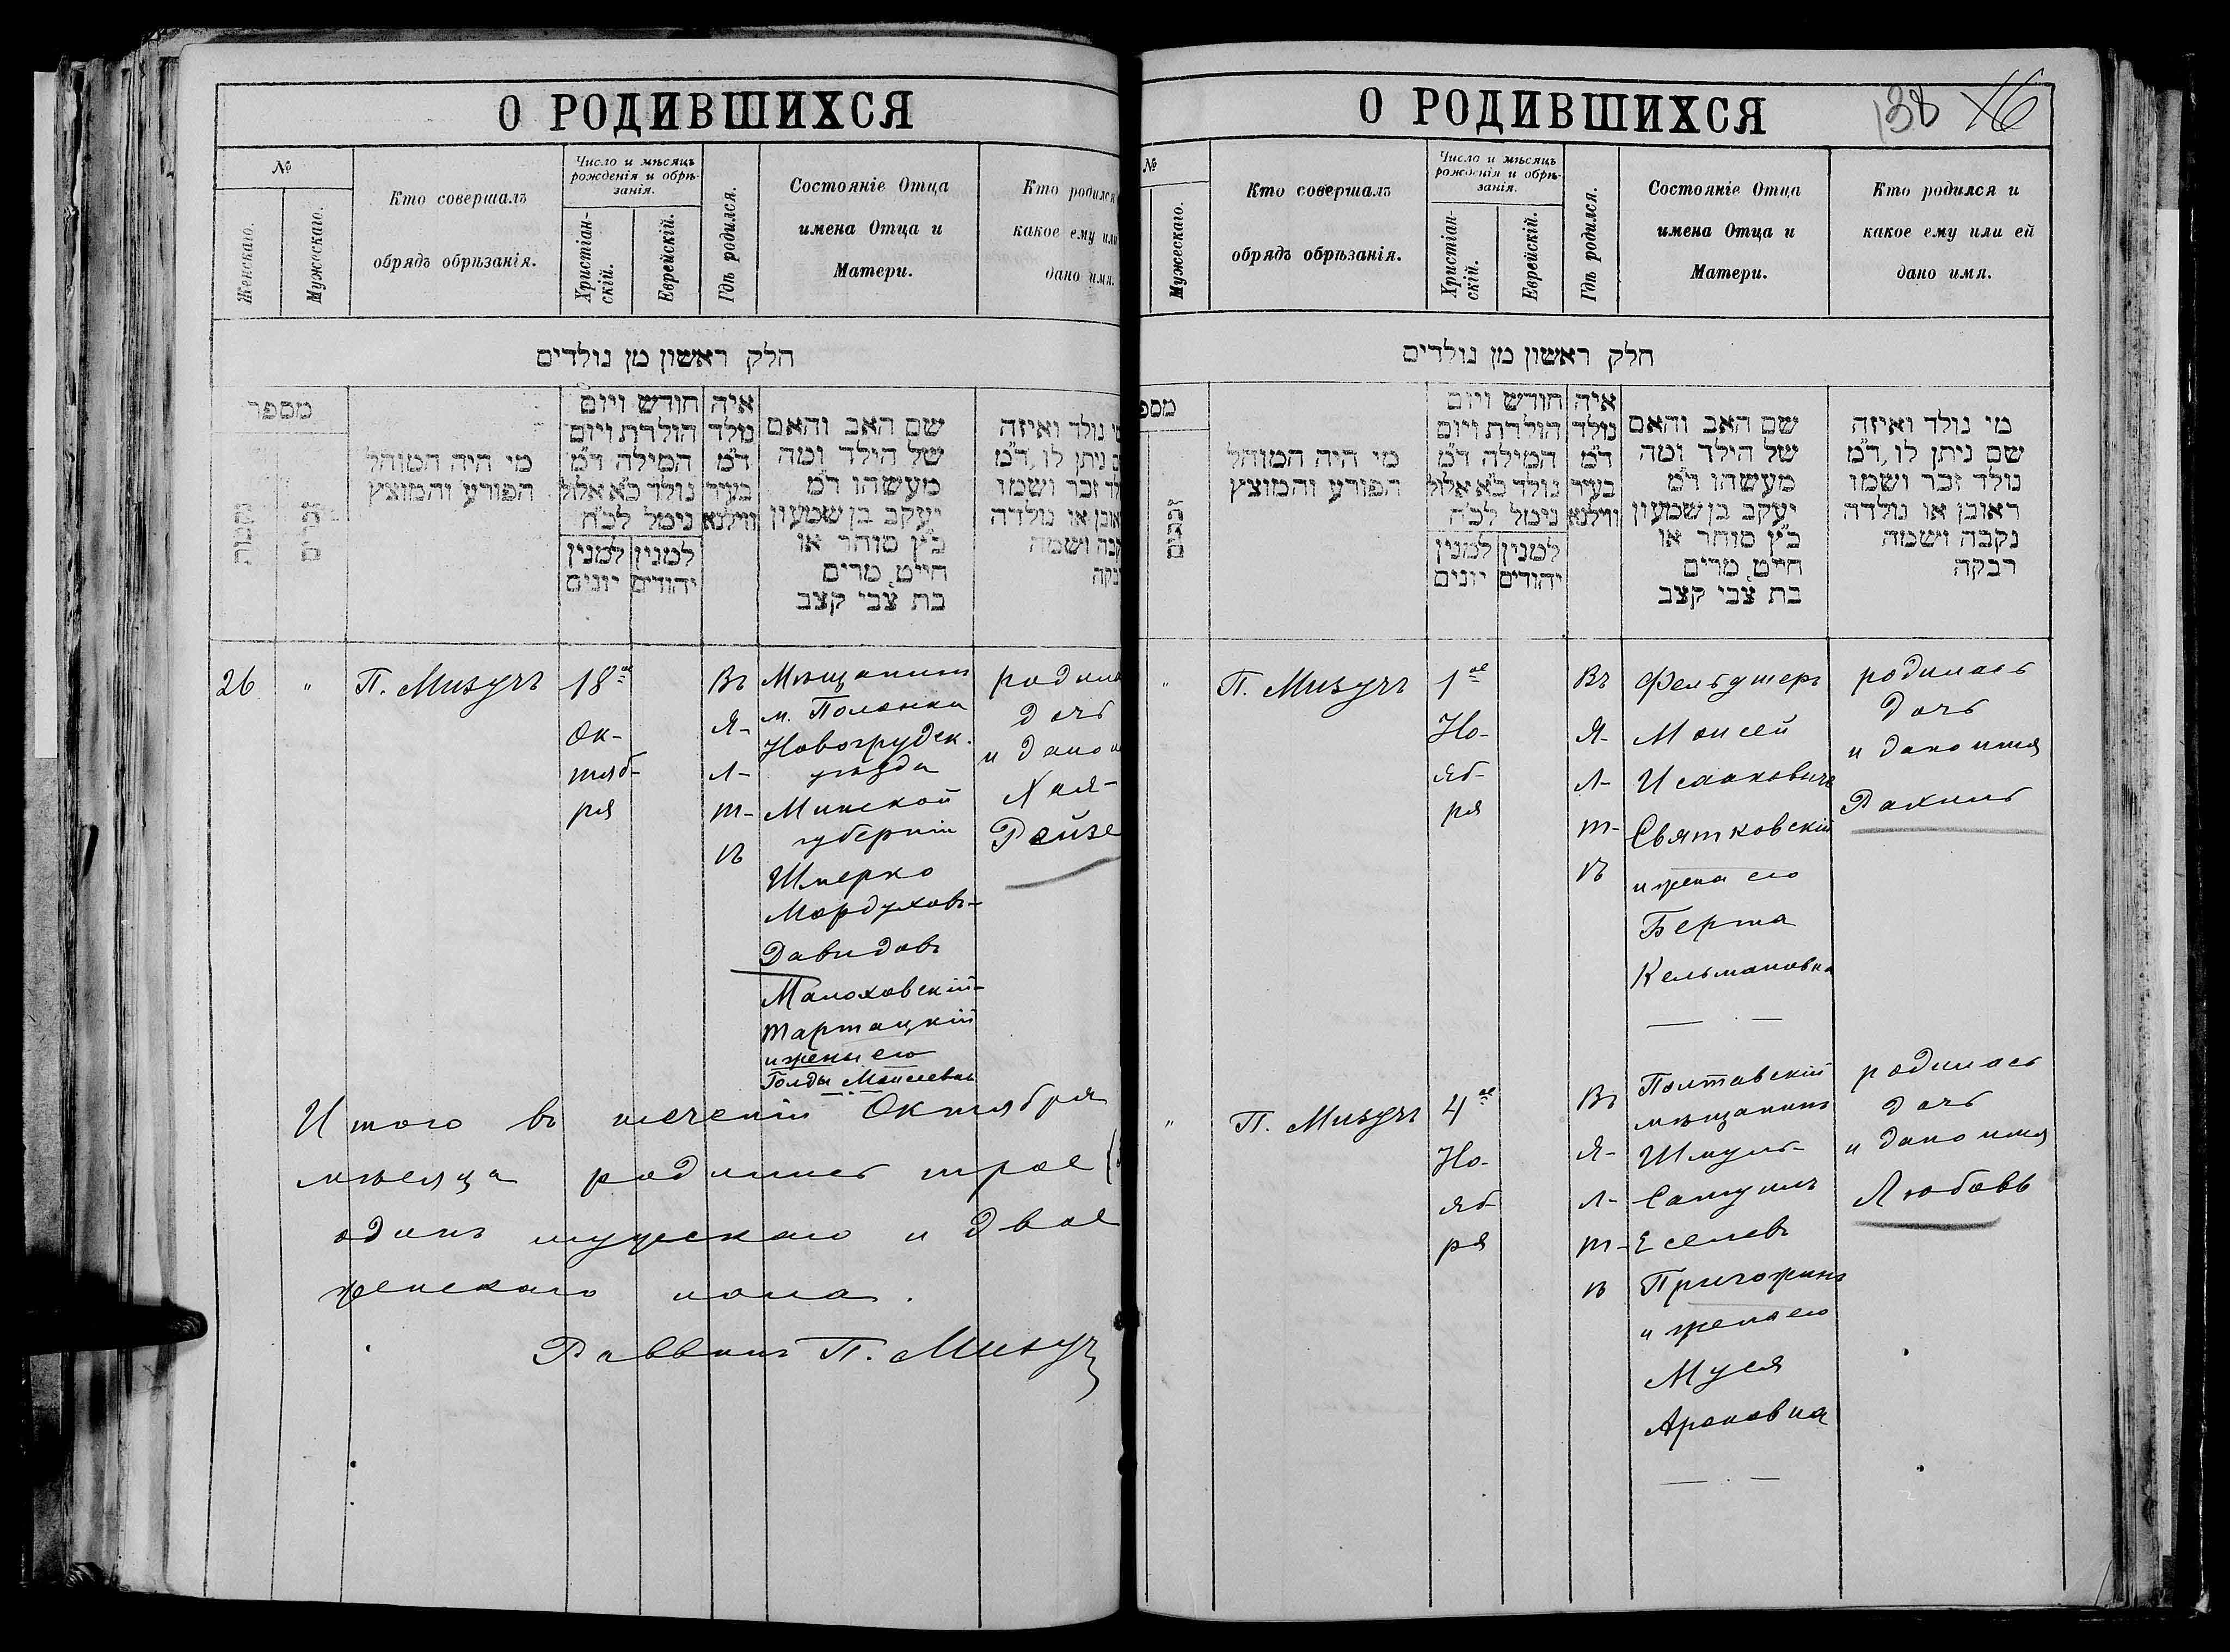 О РОДИВШИХСЯ
№
Женскаго.
Мужескаго.
Кто совершалъ
обрядъ обрѣзанія.
Число и мѣсяцъ
рожденія и обрѣ-
занія.
Христіан-
скій.
Еврейскій.
Гдѣ родился.
Состояніе Отца
имена Отца и
Матери.
Кто родился
какое ему или
дано имя.
חלק ראשון מן נולדים
מספר
נקבות
זכרים
מי היה המוהל
הפורע והמוצץ
חודש ויום
הולדת ויום
המילה ד״מ
נולד כ״א אלול
נימל לכ״ח
למנין
יהודים
למנין
יונים
איה
נולד
ד״מ
בעיר
ווילנא
שם האב והאם
של הילד ומה
מעשהו ד״מ
יעקב בן שמעון
כ״ץ סוחר או
חייט, מרים
בת צבי קצב
נולד ואיזה
ניתן לו, ד״מ
זכר ושמו
או נולדה
ושמה
26
"
П. Мизучъ
18ое
Ок-
тяб-
ря
Въ
Я-
л-
т-
ѣ
Мѣщанинъ
м. Полонки
Новогрудск.
уѣзда
Минской
губерніи
Шмерко
Мордуховъ-
Давидовъ
Малоховскій-
Тартацкій
и жены его
Голды Моисеевны
родила
дочь
и дано
Хая-
Рейзе
Итого въ теченіи Октября
мѣсяца родились трое
одинъ мужскаго и двое
женскаго пола.
Раввинъ П. Мизучъ
О РОДИВШИХСЯ
138
16
№
Мужескаго.
Кто совершалъ
обрядъ обрѣзанія.
Число и мѣсяцъ
рожденія и обрѣ-
занія.
Христіан-
скій.
Еврейскій.
Гдѣ родился.
Состояніе Отца
имена Отца и
Матери.
Кто родился и
какое ему или ей
дано имя.
חלק ראשון מן נולדים
זכרים
מי היה המוהל
הפורע והמוצץ
חודש ויום
הולדת ויום
המילה ד״מ
נולד כ״א אלול
נימל לכ״ח
למנין
יהודים
למנין
יונים
איה
נולד
ד״מ
בעיר
ווילנא
שם האב והאם
של הילד ומה
מעשהו ד״מ
יעקב בן שמעון
כ״ץ סוחר או
חייט, מרים
בת צבי קצב
מי נולד ואיזה
שם ניתן לו, ד״מ
נולד זכר ושמו
ראובן או נולדה
נקבה ושמה
רבקה
"
П. Мизучъ
1ое
Но-
яб-
ря
Въ
Я-
л-
т-
ѣ
Фельдшеръ
Моисей
Исааковичъ
Святковскій
и жена его
Берта
Кельмановна
родилась
дочь
и дано имя
Рахиль
"
П. Мизучъ
4ое
Но-
яб-
ря
Въ
Я-
л-
т-
ѣ
Полтавскій
мѣщанинъ
Шмуль-
Еселевъ
Пригожинъ
и жена его
Муся
Ароновна
родилась
дочь
и дано имя
Любовь